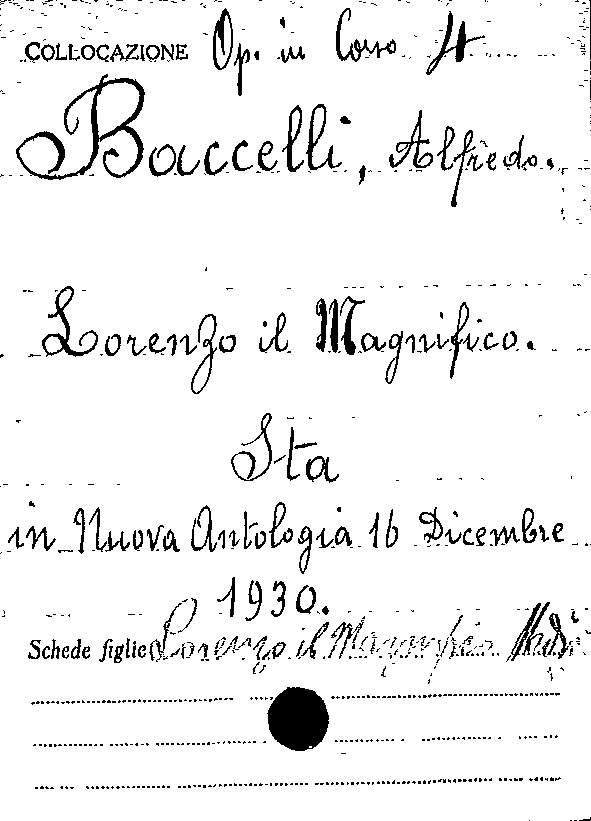 COLLOCAZIONE Op. in Corso 4
Baccelli, Alfredo.
Lorenzo il Magnifico.
Sta
in Nuova Antologia 16 Dicembre
1930.
Schede figlie Lorenzo il Magnifico